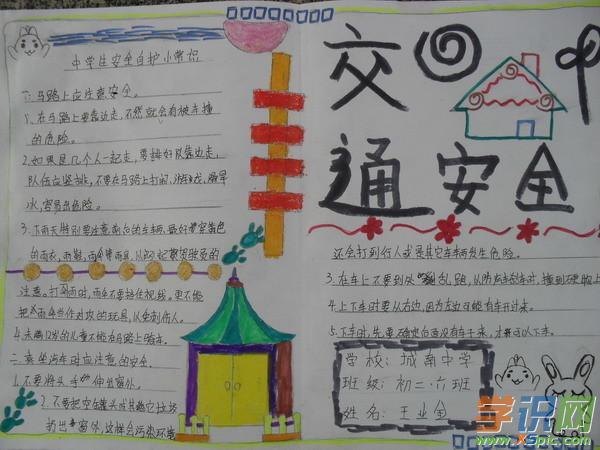 中学生安全自护小常识
一、马路上应注意安全。
1、在马路上要靠边走,不然就会有被车撞
的危险。
2、如果是几个人一起走,要排好队靠边走,
队伍应竖排,不要在马路上打闹、游戏、
冰,容易出危险。
3、下雨天特别要注意前后的车辆,最好穿
的雨衣、雨鞋、雨伞等雨具,以防
注意。打雨伞时,雨伞不要挡住视线。更不能
把雨伞当作对攻的玩具,以免刺伤人。
4、未满12岁的儿童不能在马路上骑车。
二、乘坐汽车时应注意的安全。
1、不要将头、手伸出窗外。
2、不要把空罐头或其它垃圾
扔出窗外,这样会污染环境
交通安全
还会打到行人或是其它车辆发生危险。
3、在车上不要到处乱跑,以防
4、上下车时要从右边,因为左边可能有车开过来。
5、下车时,先要确定后面没有车子来,才可以下车。
学校:城南中学
班级:初二·六班
姓名:王业全
学识网
www.XSpic.com